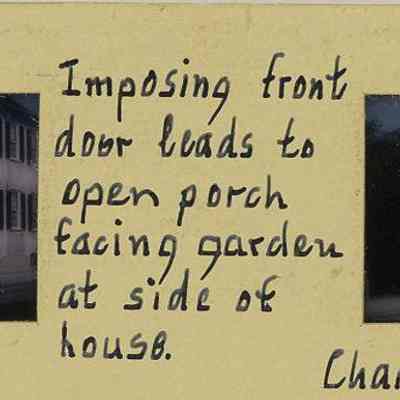 Imposing front
door leads to
open porch
facing garden
at side of
house.